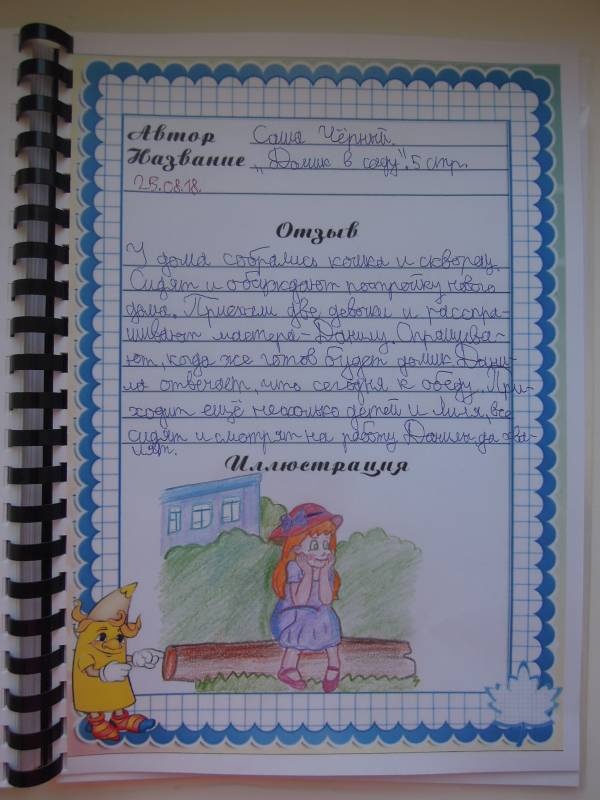 Автор Саша Чёрный.
Название „Домик в саду". 5 стр.
25.08.18
Отзыв
У дома собрались кошка и скворец.
Сидят и обсуждают постройку нового
дома. Приехали две девочки и расспра-
шивают мастера-Данилу. Спрашива-
ют, когда же готов будет домик. Дани-
ла отвечает, что сегодня к обеду. При-
ходит ещё несколько детей и Лиля, все
сидят и смотрят на работу Данилы да хва-
лят.
Иллюстрация